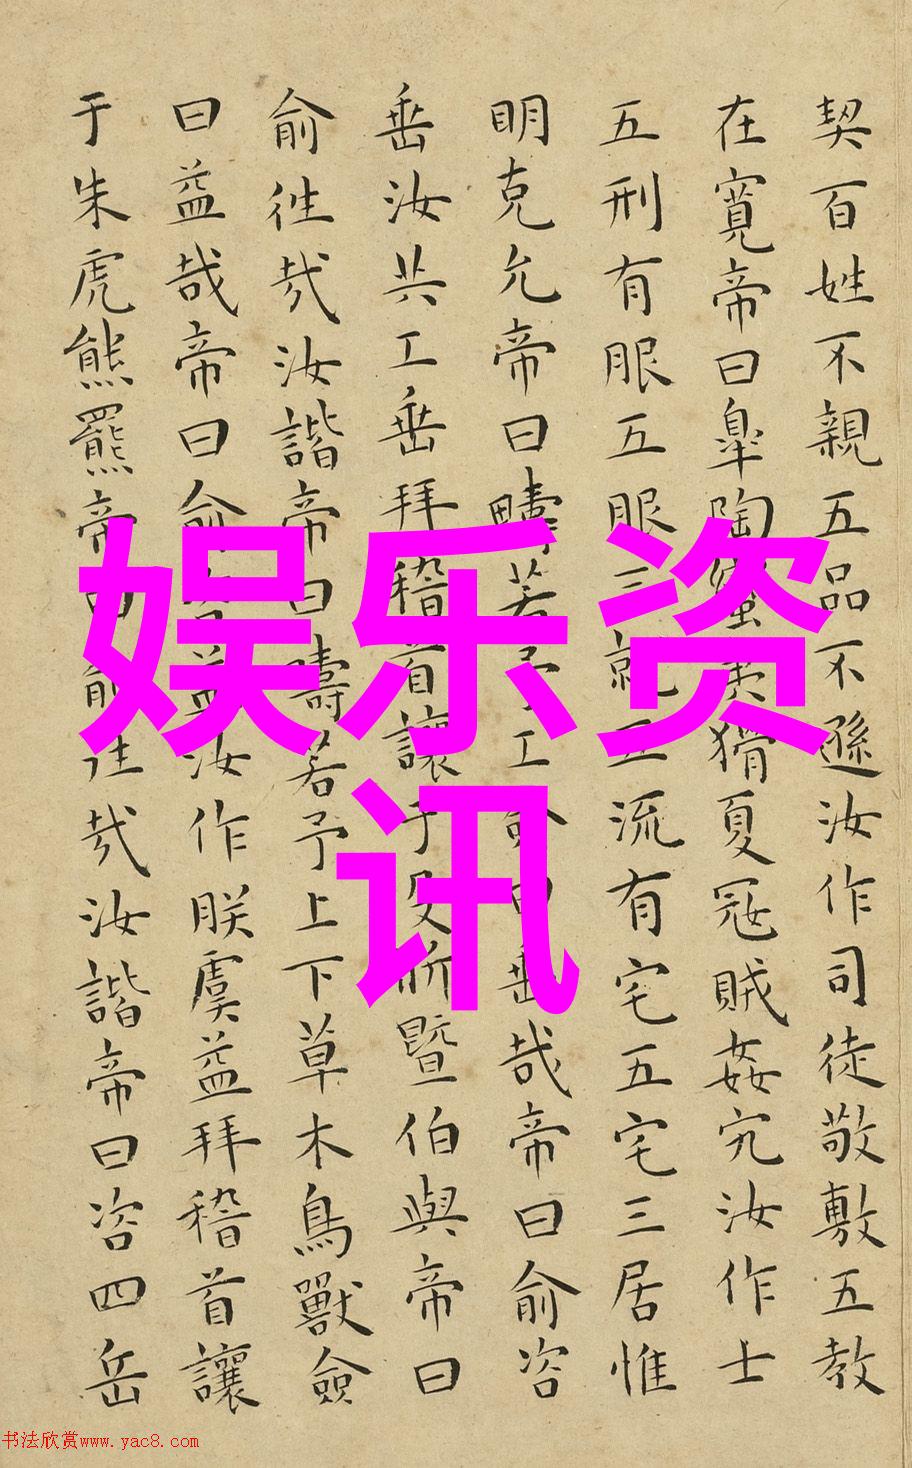 契百姓不親五品不遜汝作司徒敬敷五教
在寬帝曰皐陶蠻夷猾夏冦賊姦宄汝作士
五刑有服五服三就五流有宅五宅三居惟
明克允帝曰疇若予工僉曰垂哉帝曰俞咨
垂汝共工垂拜稽首讓于殳斨暨伯與帝曰
俞往哉汝諧帝曰疇若予上下草木鳥獸僉
曰益哉帝曰俞咨益汝作朕虞益拜稽首讓
于朱虎熊羆帝曰俞往哉汝諧帝曰咨四岳
娱乐资
讯
书法欣赏www.yac8.com